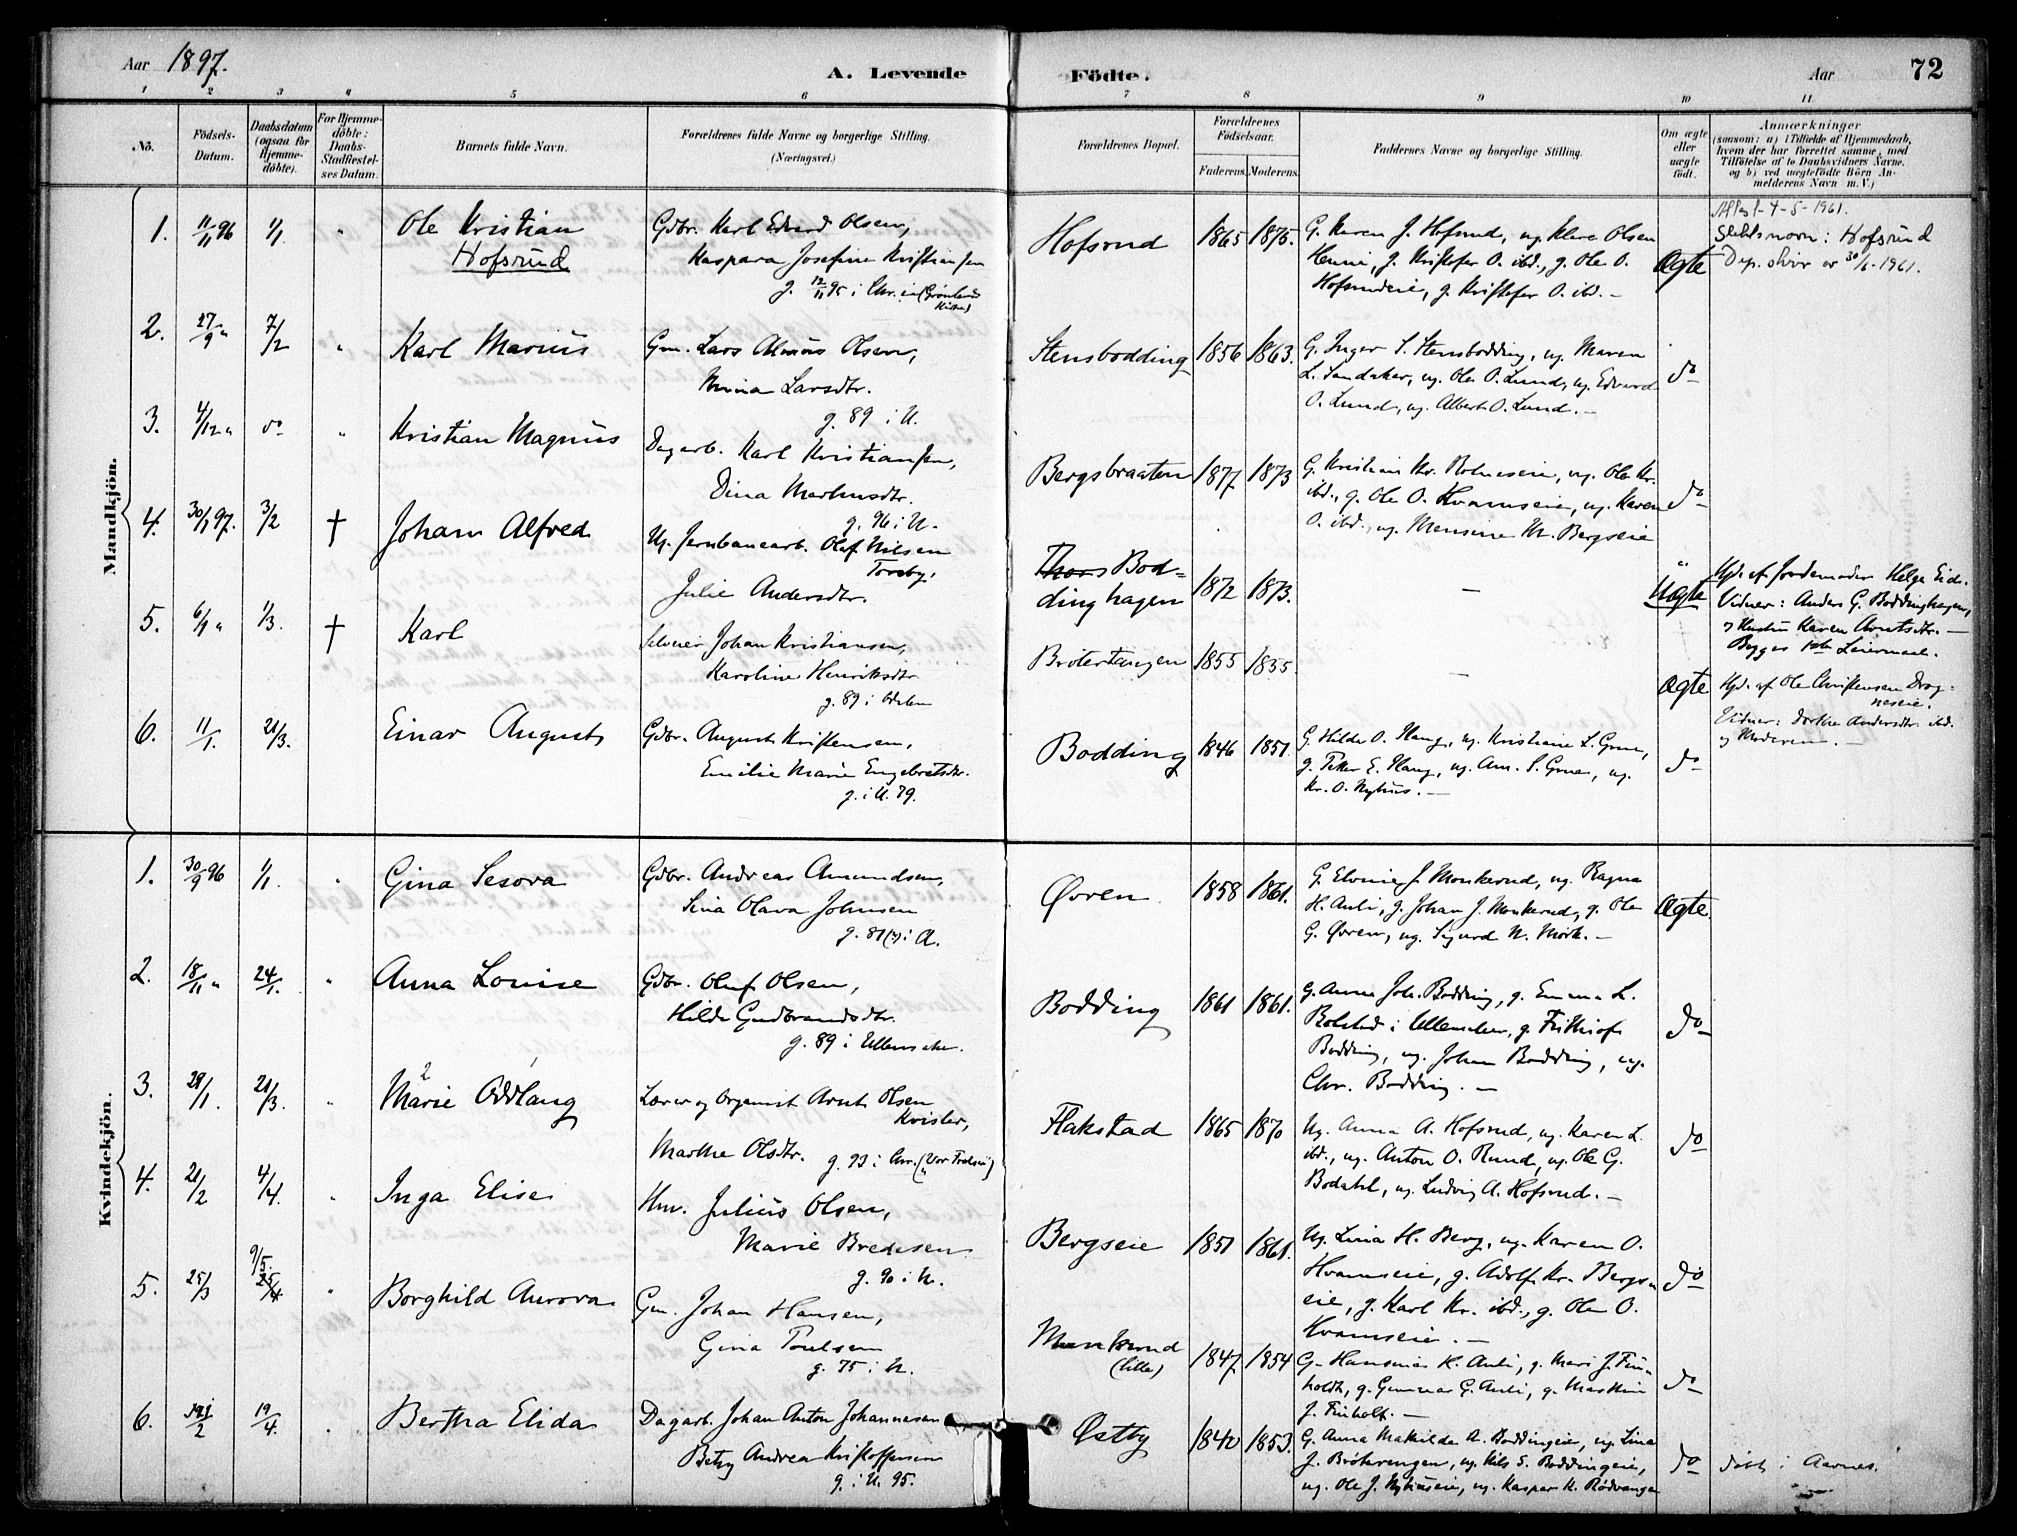 Aar 1897.
A. Levende
Fødte.
Aar
72
1 2 3 4 5 6 7 8 9 10 11
No.
Fødsels-
Datum.
Daabsdatum
(ogsaa for
Hjemme-
døbte).
For Hjemme-
døbte:
Daabs-
Stadfæstel-
ses Datum.
Barnets fulde Navn.
Forældrenes fulde Navne og borgerlige Stilling.
(Næringsvei.)
Forældrenes Bopæl.
Forældrenes
Fødselsaar.
Faderens. Moderens.
Faddernes Navne og borgerlige Stilling.
Om ægte
eller
uægte
født.
Anmærkninger
(saasom: a) i Tilfælde af Hjemmedaab,
hvem der har forrettet samme, med
Tilføielse af to Daabsvidners Navne.
og b) ved uægtefødte Börn An-
melderens Navn m. V.)
Mandkjön.
1. 11/11 96 1/1 " Ole Kristian
Hofsrud
Gdbr. Karl Edvard Olsen,
Kaspara Josefine Kristiansen
g. 12/11 95 i Chr.ia (Grønlands
Kirke)
Hofsrud 1865 1875.
G. Karen J. Hofsrud, ug. Klara Olsen
g. Kristofer O. ibd., g. Ole O.
g. Kristofer O. ibd. —
Ægte
4-5-1961.
Slektsnavn: Hofsrud
Dep. skriv av 30/ -1961.
2. 27/9 " 7/2 " Karl Marius
Gm. Lars Olsen,
Larsdtr.
g. 89 i U.
Stensbodding 1856 1863.
G. Inger S. Stensbodding, ug. Maren
L. Sandaker, ug. Ole O. Lund, ug. Edvard
O. Lund, ug. Albert O. Lund. —
do
3. 4/12 " do " Kristian Magnus
Dagarb. Karl Kristiansen,
Dina
g. 96 i U.
Bergsbraaten 1877 1873
G. Kristian Kr. ug. Ole Kr.
ibd., g. Ole O. Hvamseie, ug. Karen
O. ibd., ug. Bergseie
do
4. 30/1 97. 3/2 † Johan Alfred
Ug. Jernbanearb. Olaf Nilsen
Torsby,
Julie Andersdtr.
Bod=
dinghagen 1872 1873.
—
Uægte
Hjd. af Jordemoder Helga Eids.
Vidner: Anders G. Boddinghagen,
Hustru Karen Arntsdtr. —
Begges 1ste Leiermaal.
5. 6/9 " 1/3. † Karl
Selveier Johan Kristiansen,
Karoline Henriksdtr
g. 89 i Odalen
Brøtertangen 1855 1855.
—
Ægte
Hjd. af Ole Christensen Drog=
neseie.
Vidner: Dorthe Andersdtr. ibd.
og Moderen. —
6. 11/1. 21/3. Einar August
Gdbr. August Kristensen,
Emilie Marie Engebretsdtr.
g. i U. 79.
Bodding 1846 1851
G. Hilda O. Haug, ug. Kristiane L. Grue,
g. Peter E. Haug, ug. Am. S. Grue, ug.
Kr. O. Nyhus. —
do
Kvindekjön.
1. 30/9 96 1/1. " Gina Sesora
Gdbr. Andreas Amundsen,
Lina Olava Johnsen
g. 81 (?) i A.
Øvren 1858 1861.
G. Elvine J. Monkerud, ug. Ragna
H. Auli, g. Johan J. Monkerud, g. Ole
G. Øvren, ug. Sigurd N. Mörk. —
Ægte.
2. 18/11 " 24/1. " Anna Louise
Gdbr. Oluf Olsen,
Hilda Gudbrandsdtr.
g. 89 i Ullensaker.
Bodding 1861 1861.
g. Anne Joh. Bodding, g. Emma L.
Rolstad i Ullensaker, g. Frithiof
Bodding, ug. Johan Bodding, ug.
Chr. Bodding. —
do
3. 28/1. 21/3. " Marie Oddlaug
Lærer og Organist Arnt Olsen
Kvisler,
Marthe Olsdtr. g. 93 i Chr. (Vor Frelser)
Flakstad 1865 1870
Ug. Anna A. Hofsrud, ug. Karen L.
ibd., ug. Anton O. Rund, ug. Ole G.
Bodahl, ug. Ludvig A. Hofsrud. —
do
4. 21/2 4/4. " Inga Elise
Hm. Julius Olsen,
Marie Bredesen
g. 90 i U.
Bergseie 1851 1861.
Ug. Lina H. Berg, ug. Karen O.
Hvamseie, g. Adolf Kr. Bergs=
eie, g. Karl Kr. ibd., g. Ole O.
Hvamseie. —
do
5. 25/3 9/5. 25/4 " Borghild Aurora
Gm. Johan Hansen,
Gina Poulsen
g. 75 i U.
Monkerud
(lille) 1847. 1854
G. Hansine K. Auli, g. Mari J. Fin=
holdt, g. Gunnar G. Auli, g. Mathias
J. Finholt. —
do
6. 2 19/4. " Bertha Elida
Dagarb. Johan Anton Johannesen
Betzy Andrea Kristoffersen
g. i U. 95.
Østby 1840 1853.
G. Anna Mathilde A. Boddingeie, ug. Lina
J. ug. Nils S. Boddingeie,
ug. Ole J. Nyhuseie, ug. Kaspar K. Rødvangen
do
Døbt i Aarnes.